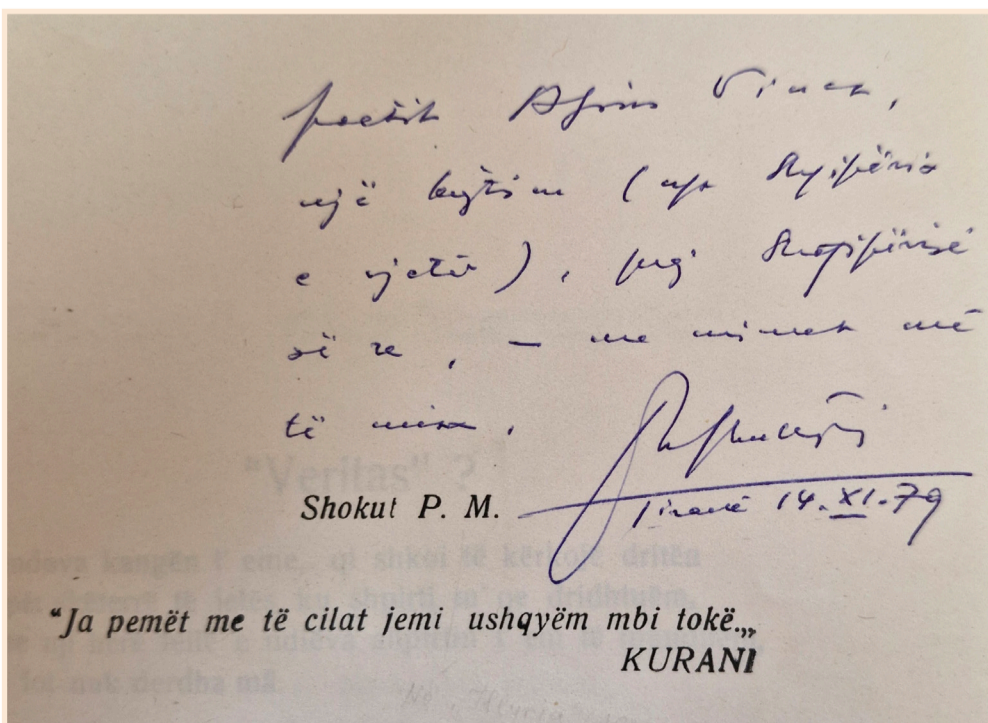 poetit Agim Vinca,
një kujtim (nga Shqipëria
e vjetër), prej Shqipërisë
së re, — me urimet më
të mira.
"Veritas" ?
Shokut P. M.
Tiranë 14.XI.79
"Ja pemët me të cilat jemi ushqyëm mbi tokë.„
KURANI